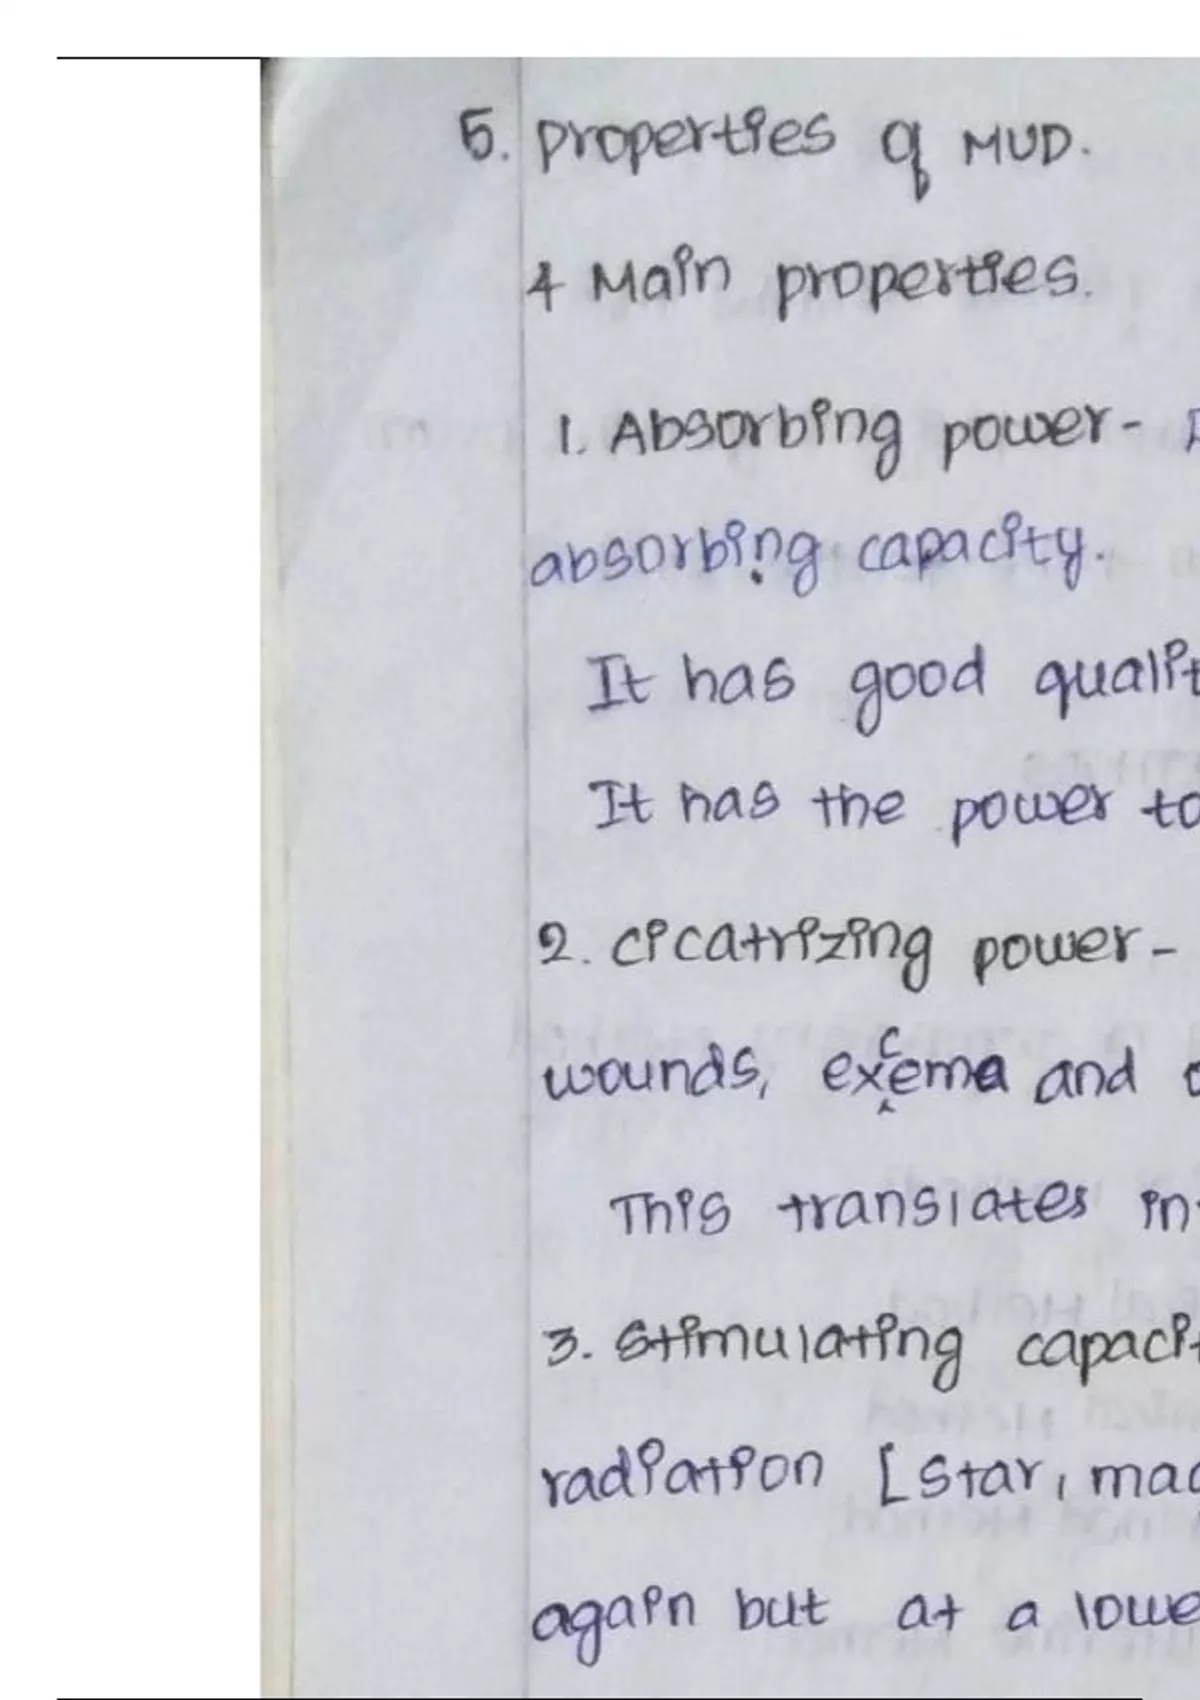 5. properties of MUD.
4 Main properties.
1. Absorbing power -
absorbing capacity.
It has good qualit
It has the power to
2. cicatrizing power -
wounds, excema and
This translates in
3. Stimulating capacit
radiation [star, mac
again but at a lowe